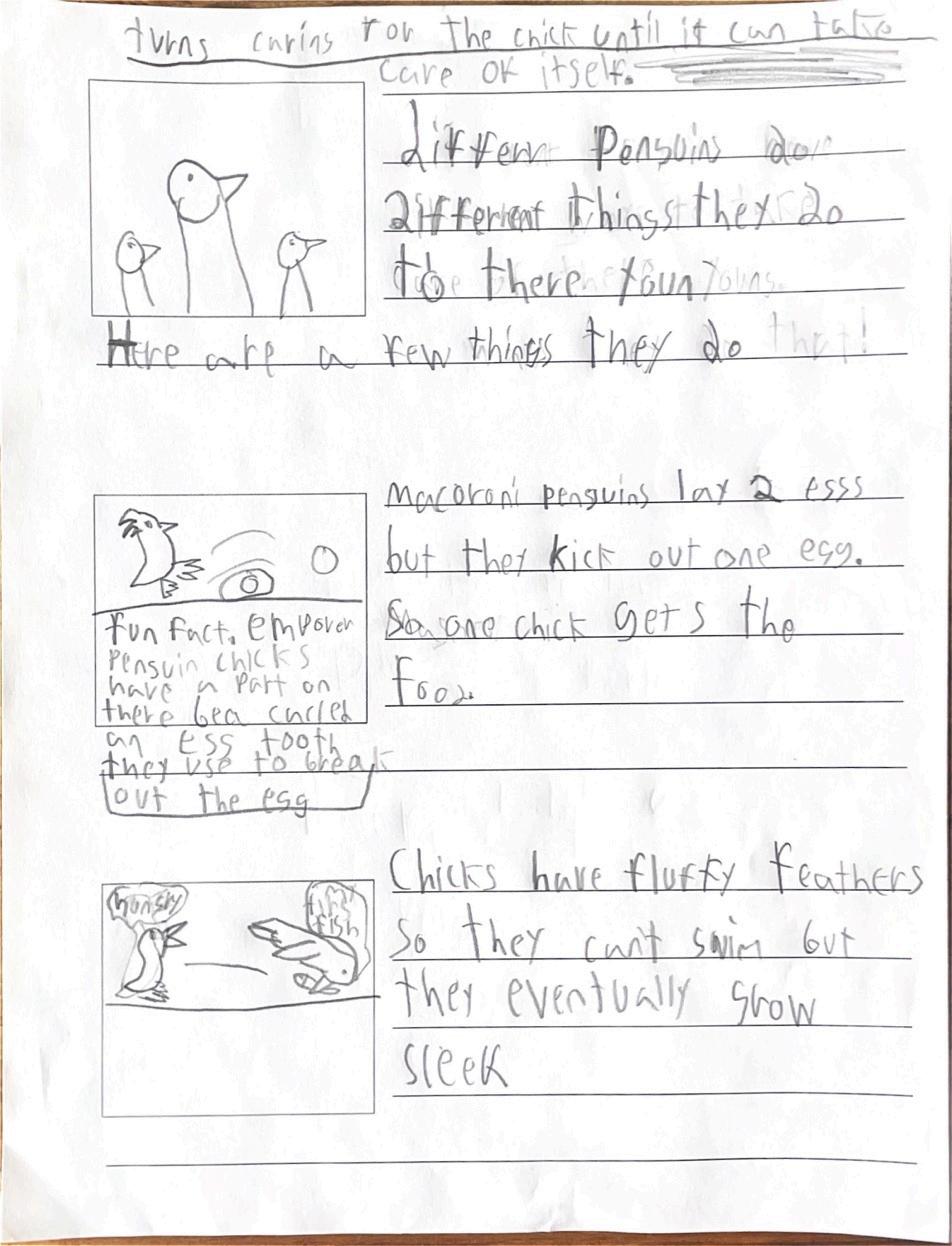 turns caring for the chick until it can take
care of itself.
different Penguins do
different things they do
to there youn
Here are a few things they do that!
Macoroni penguins lay 2 eggs
but they kick out one egg.
So one chick gets the
food.
fun fact, emporer
penguin chicks
have a part on
there bea called
an egg tooth
they use to break
out the egg
Chicks have fluffy feathers
so they can't swim but
they eventually grow
sleek
hungry
fish